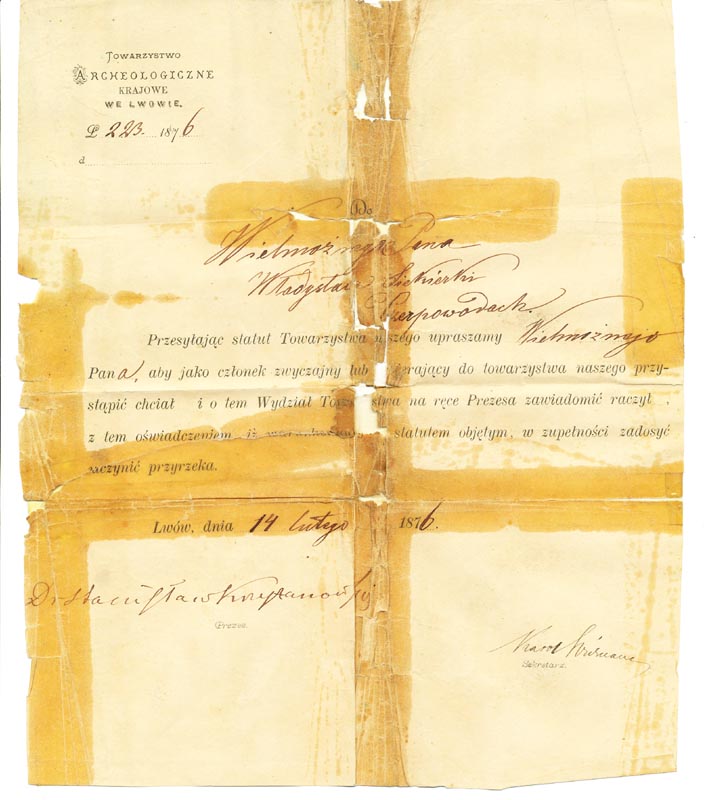 TOWARZYSTWO
ARCHEOLOGICZNE
KRAJOWE
WE LWOWIE.
L 223. 1876
d
Do
Wielmożnego Pana
Władysława Siekierki
Czerpowodach.
Przesyłając statut Towarzystwa szego upraszamy Wielmożnego
Pana, aby jako członek zwyczajny lub erający do towarzystwa naszego przy-
stąpić chciał i o tem Wydział Tow stwa na ręce Prezesa zawiadomić raczył,
z tem oświadczeniem iż statutem objętym, w zupełności zadosyć
uczynić przyrzeka.
Lwów, dnia 14 lutego 1876.
Dr Stanisław Krzyżanowski
Prezes.
Karol
Sekretarz.